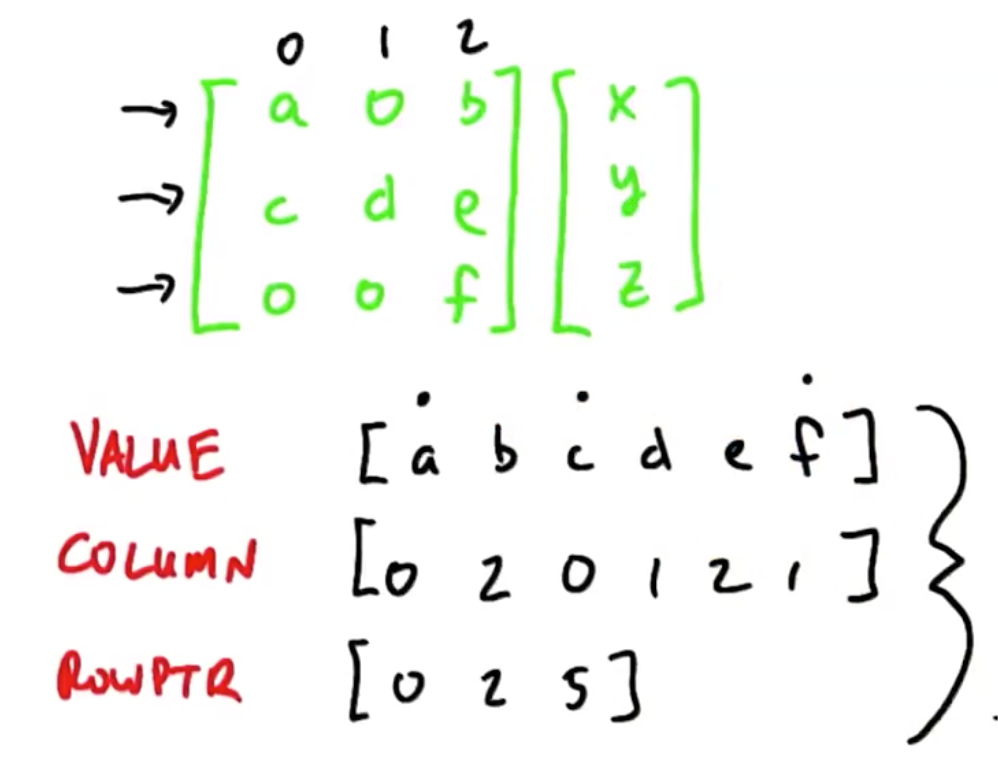 0 1 2
→ [ a 0 b ] [ x ]
→ [ c d e ] [ y ]
→ [ 0 0 f ] [ z ]
VALUE [ a b c d e f ]
COLUMN [ 0 2 0 1 2 1 ]
ROWPTR [ 0 2 5 ]